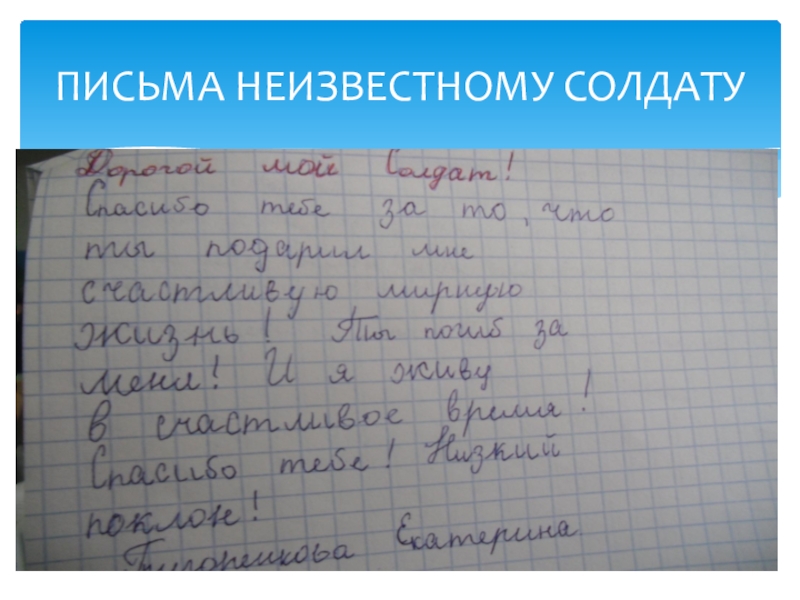 ПИСЬМА НЕИЗВЕСТНОМУ СОЛДАТУ
Дорогой мой Солдат!
Спасибо тебе за то, что
ты подарил мне
счастливую мирную
жизнь! Ты погиб за
меня! И я живу
в счастливое время!
Спасибо тебе! Низкий
поклон!
Екатерина